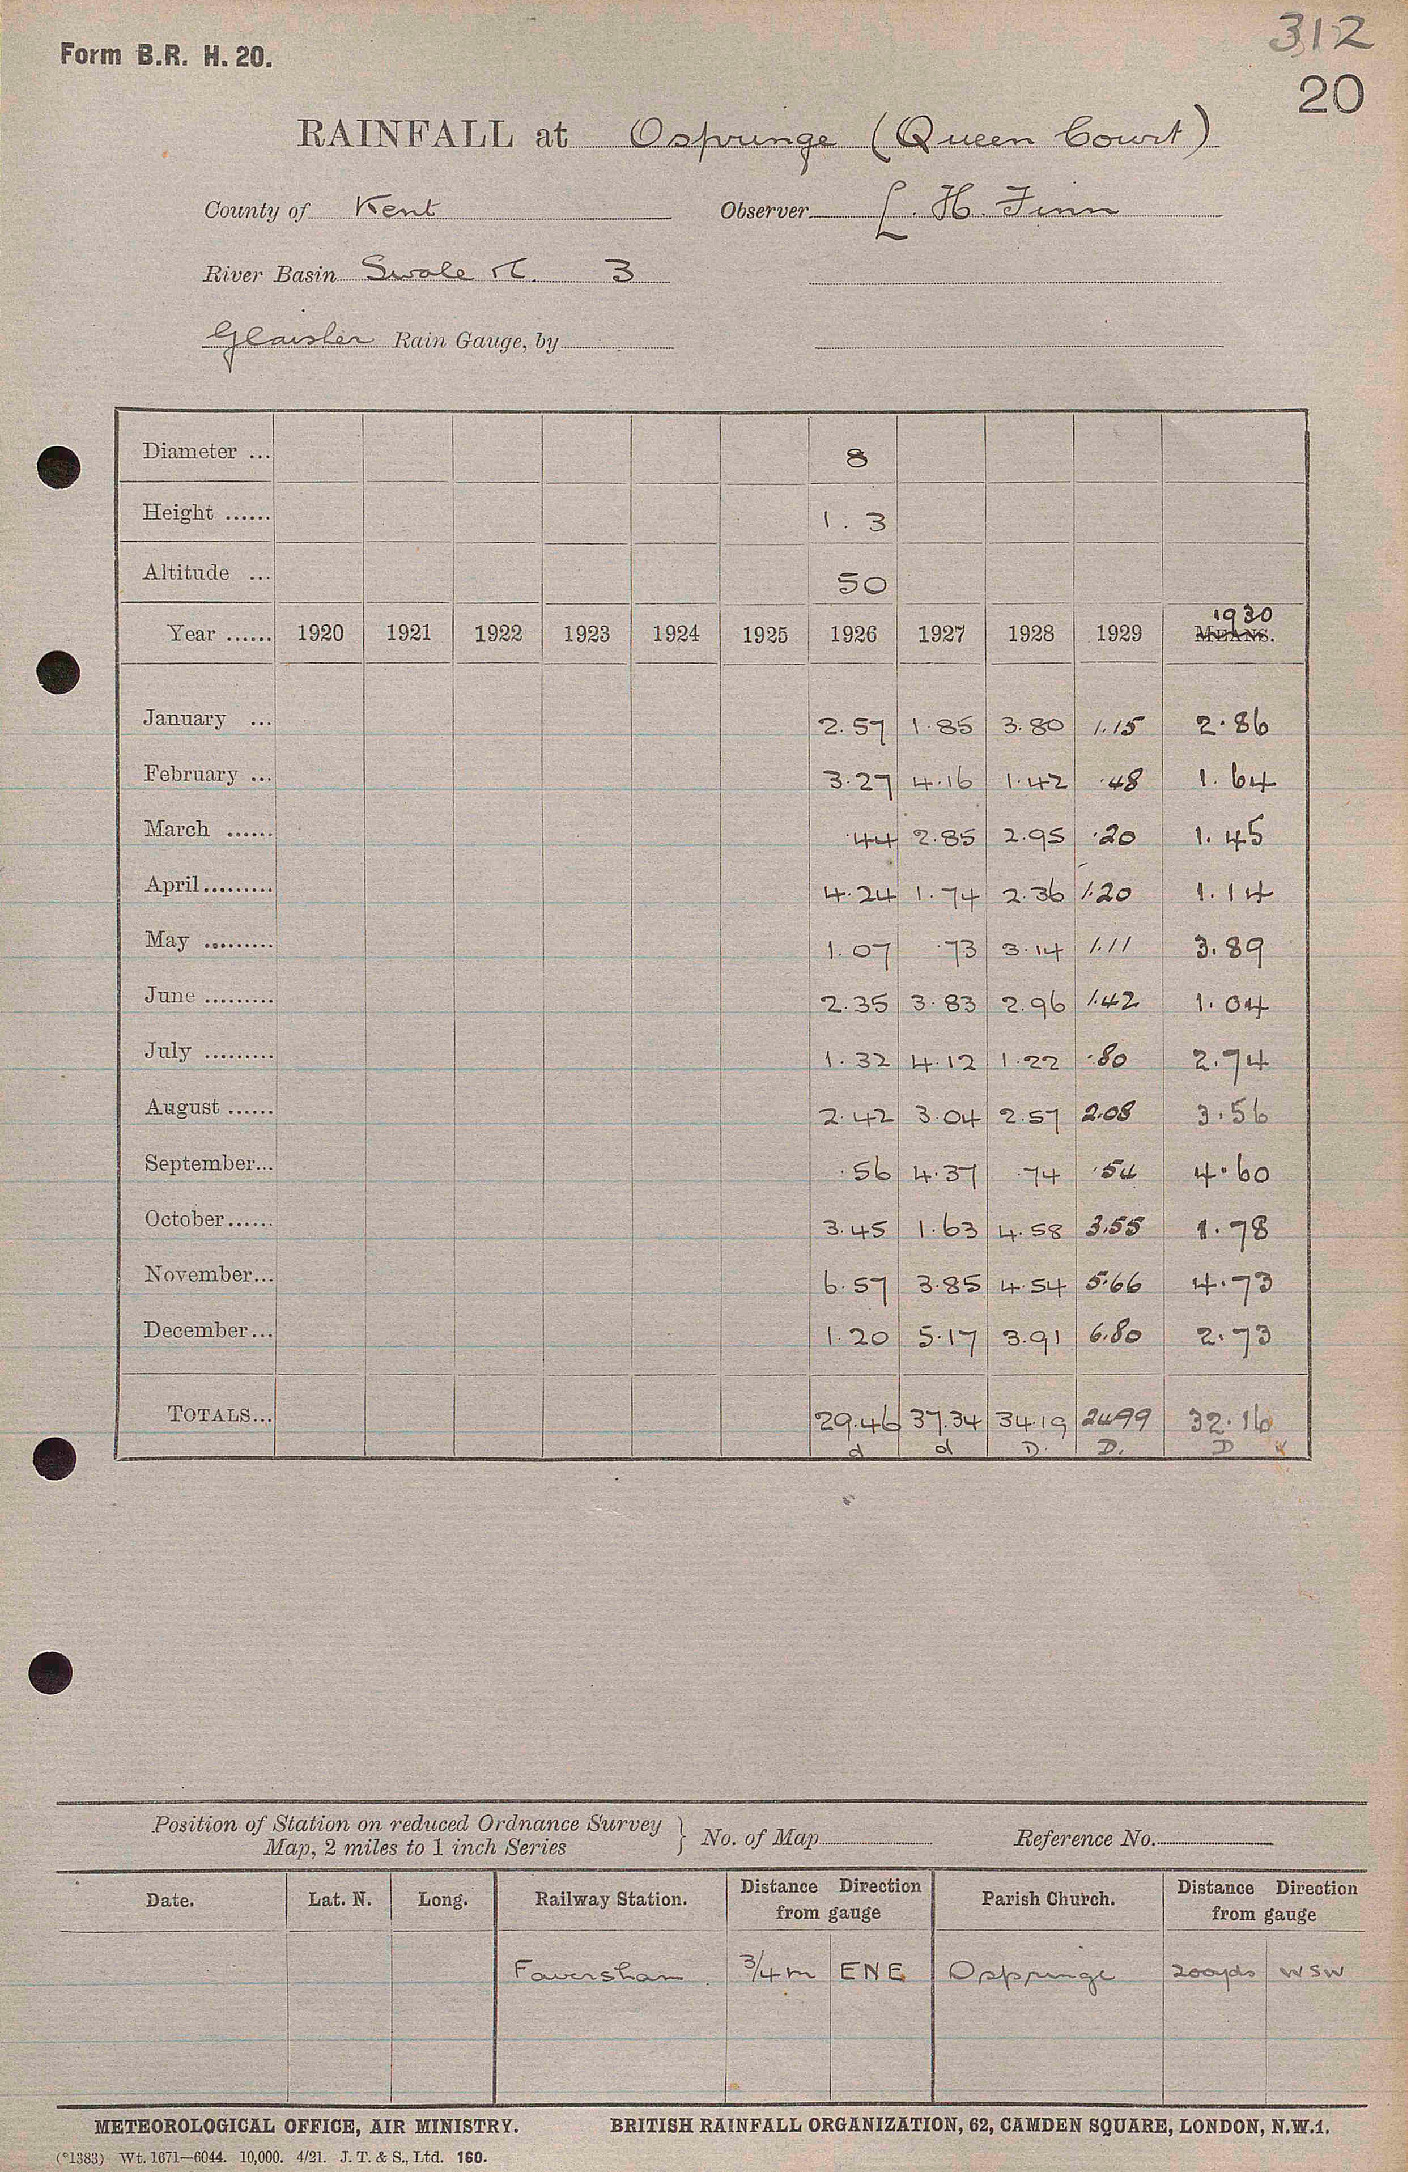 312
Form B.R. H. 20.
20
RAINFALL at Ospringe (Queen Court)
County of Kent Observer L. H. Finn
River Basin Swale 3
Glaisher Rain Gauge, by
Diameter ... 8
Height ...... 1.3
Altitude ... 50
1930
Year ...... 1920 1921 1922 1923 1924 1925 1926 1927 1928 1929 MEANS.
January ... 2.57 1.85 3.80 1.15 2.86
February ... 3.27 4.16 1.42 .48 1.64
March ...... .44 2.85 2.95 .20 1.45
April ......... 4.24 1.74 2.36 1.20 1.14
May ......... 1.07 .73 3.14 1.11 3.89
June ......... 2.35 3.83 2.96 1.42 1.04
July ......... 1.32 4.12 1.22 .80 2.74
August ...... 2.42 3.04 2.57 2.08 3.56
September... .56 4.37 .74 .54 4.60
October...... 3.45 1.63 4.58 3.55 1.78
November... 6.57 3.85 4.54 5.66 4.73
December... 1.20 5.17 3.91 6.80 2.73
TOTALS... 29.46 37.34 34.19 24.99 32.16
d d D. D. D
Position of Station on reduced Ordnance Survey
Map, 2 miles to 1 inch Series } No. of Map Reference No.
Date. Lat. N. Long. Railway Station. Distance Direction from gauge Parish Church. Distance Direction from gauge
Faversham. 3/4 m ENE Ospringe 200yds WSW
METEOROLOGICAL OFFICE, AIR MINISTRY. BRITISH RAINFALL ORGANIZATION, 62, CAMDEN SQUARE, LONDON, N.W.1.
(*1383) Wt. 1671—6044. 10,000. 4/21. J. T. & S., Ltd. 160.